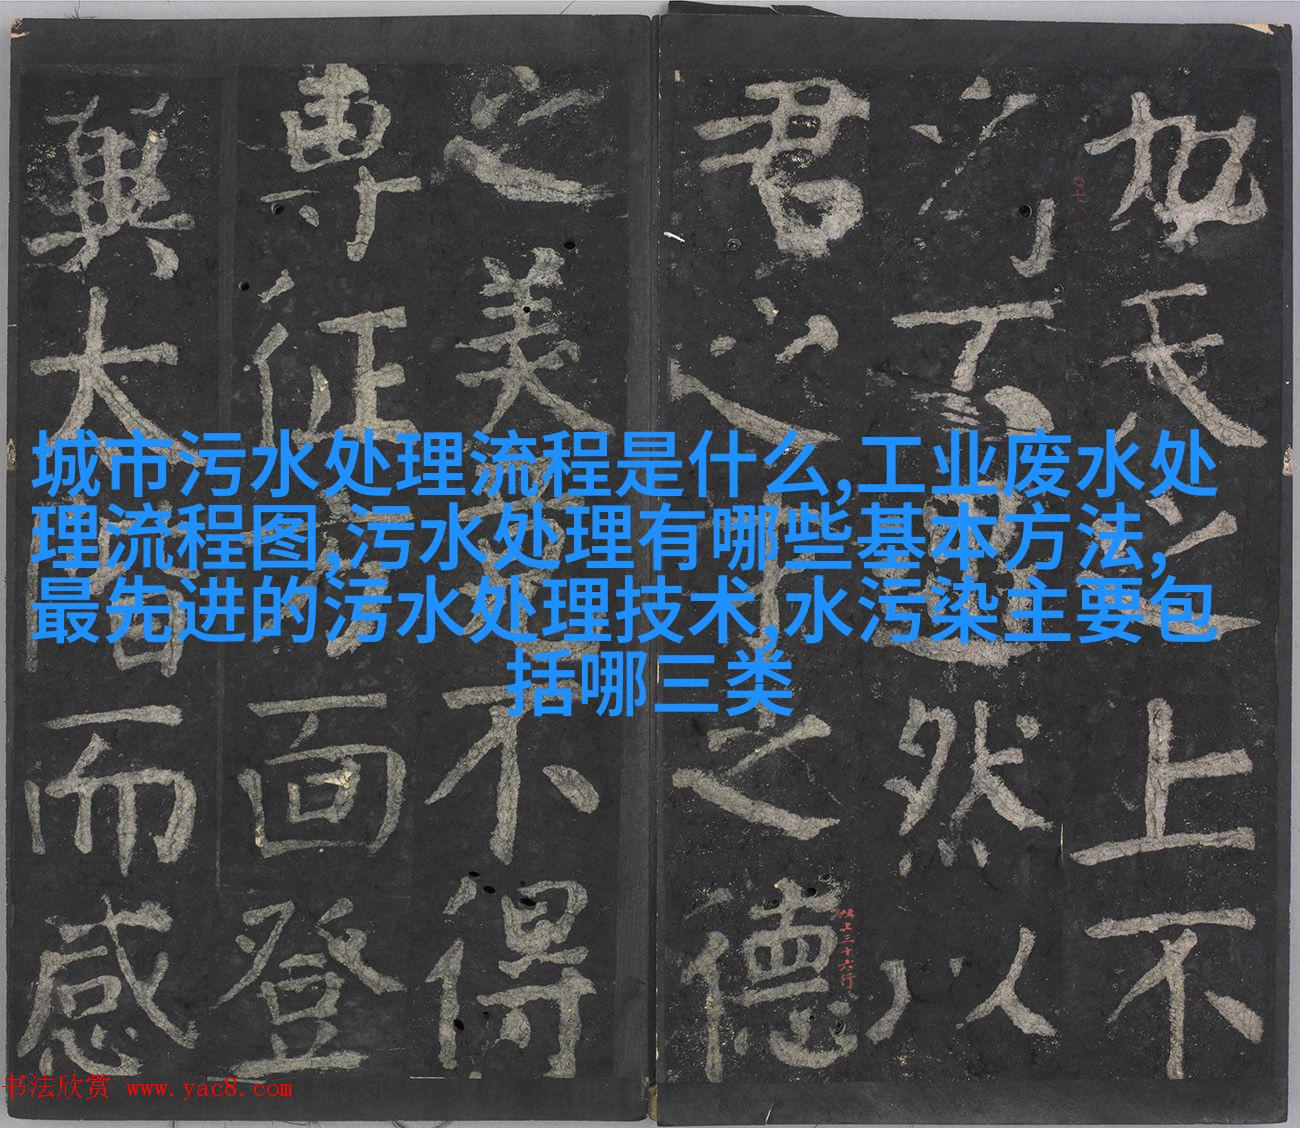 城市污水处理流程是什么,工业废水处
理流程图,污水处理有哪些基本方法,
最先进的污水处理技术,水污染主要包
括哪三类
氏之上不
然以
君之德
之美不得
專征面登
太階而感
上三十六行
书法欣赏 www.yac8.com